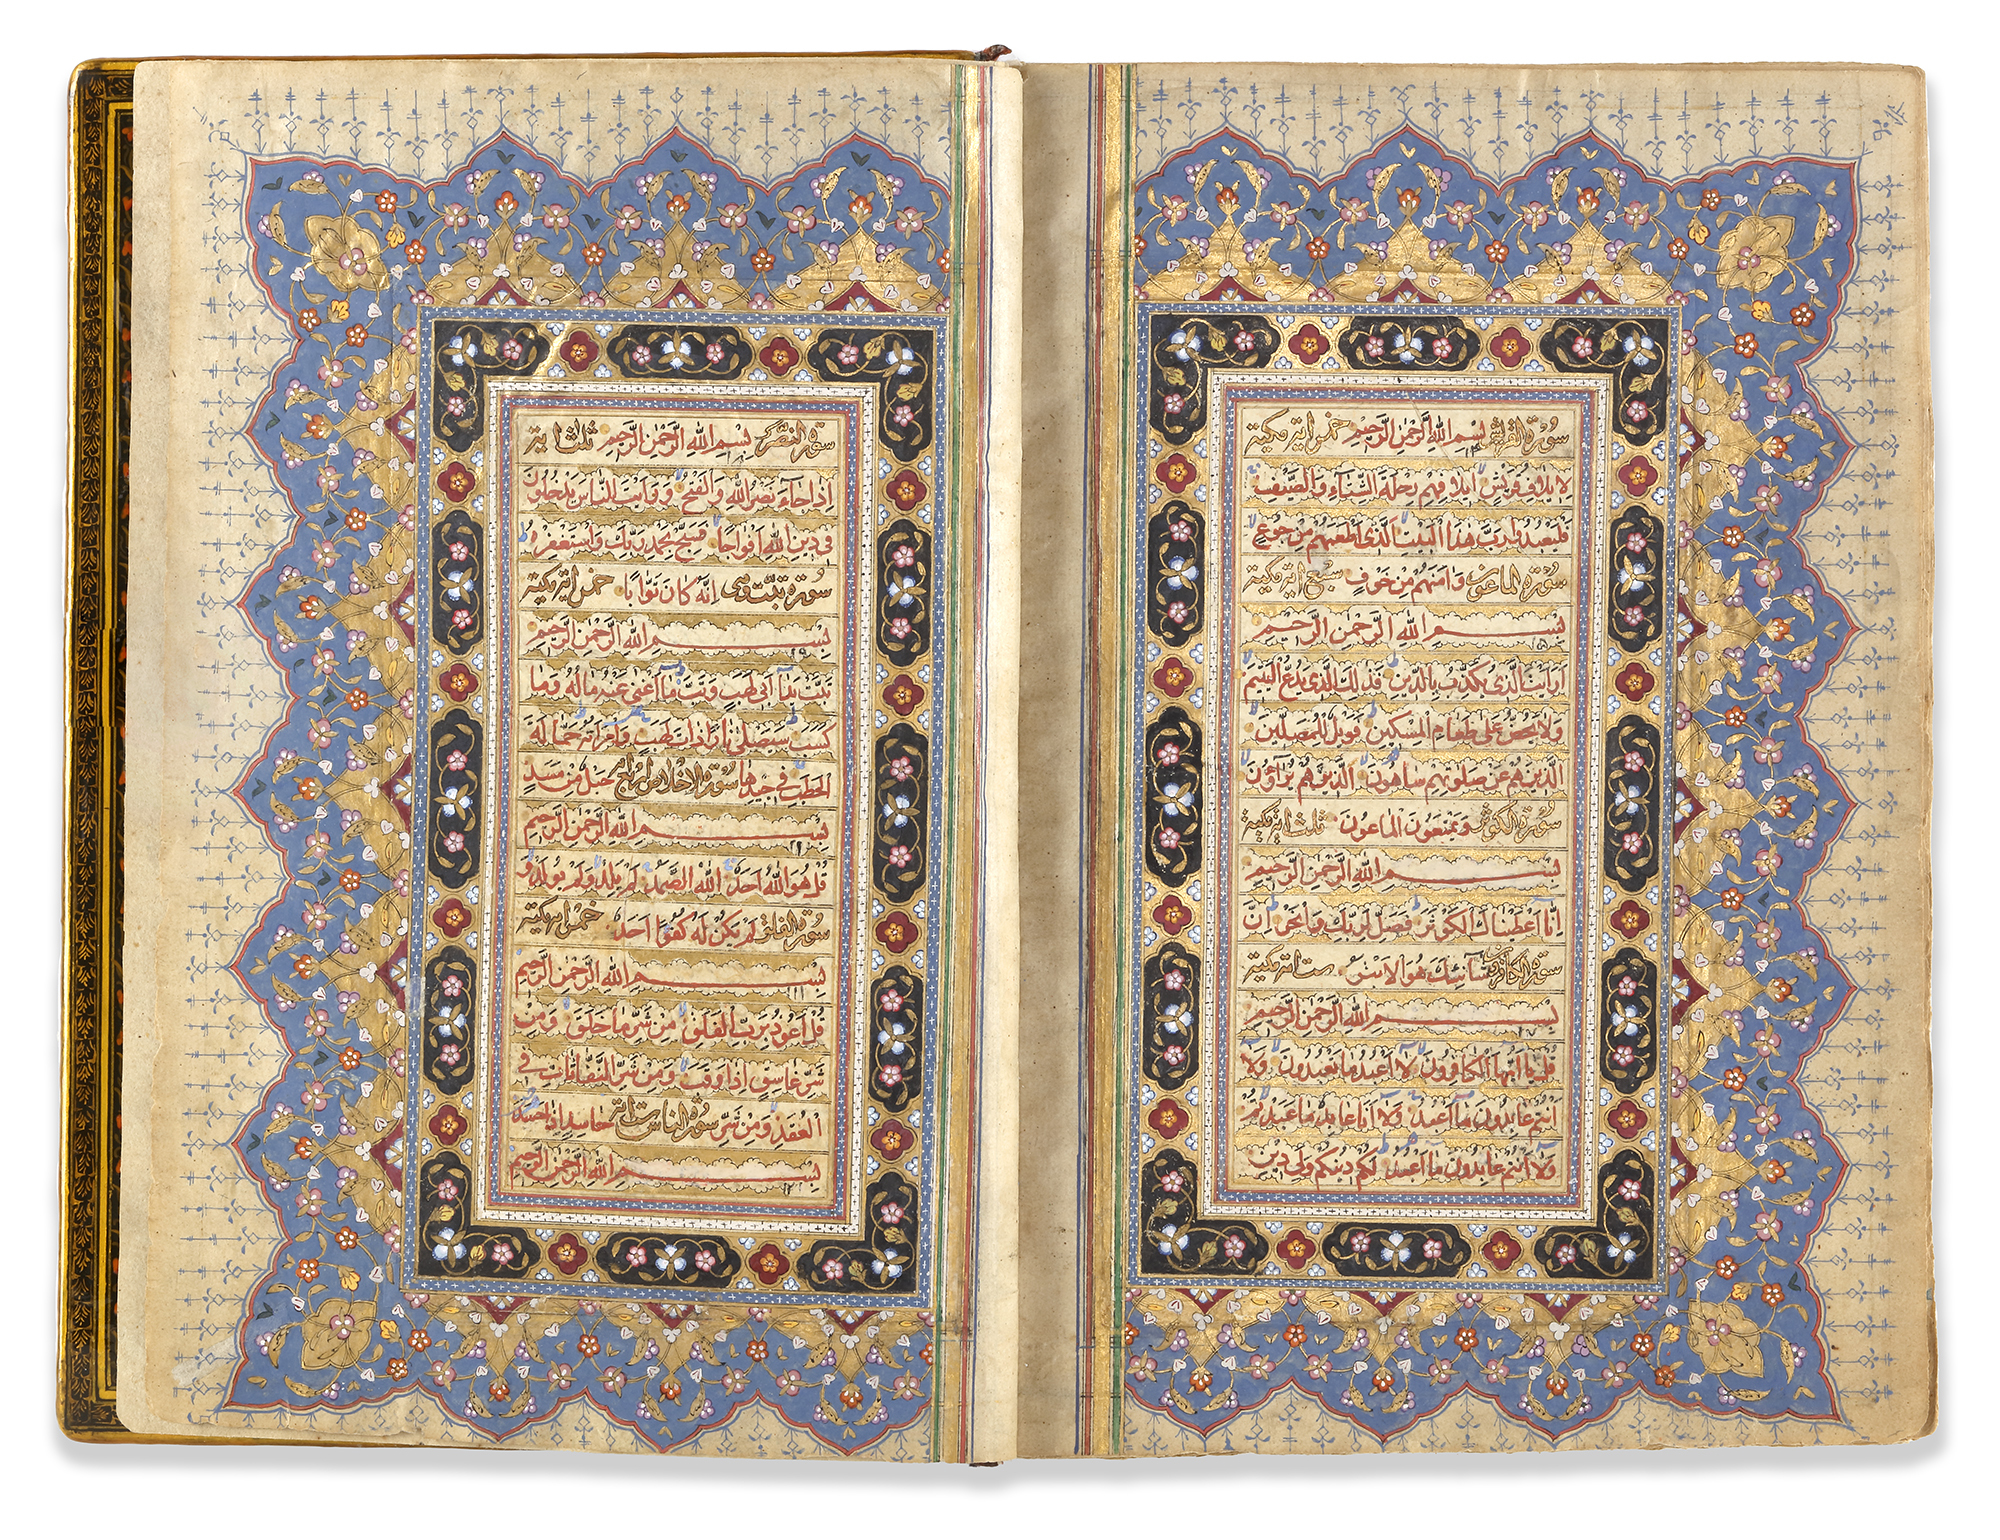 سورة القريش بسم الله الرحمن الرحيم خمس اية مكية
لايلاف قريش ايلافهم رحلة الشتاء والصيف
فليعبدوا رب هذا البيت الذي اطعمهم من جوع
سورة الماعون وامنهم من خوف سبع اية مكية
بسم الله الرحمن الرحيم
ارايت الذي يكذب بالدين فذلك الذي يدع اليتيم
ولا يحض على طعام المسكين فويل للمصلين
الذين هم عن صلوتهم ساهون الذين هم يراؤن
سورة الكوثر ويمنعون الماعون ثلث اية مكية
بسم الله الرحمن الرحيم
انا اعطيناك الكوثر فصل لربك وانحر ان
سورة الكافرون شانئك هو الابتر ست اية مكية
بسم الله الرحمن الرحيم
قل يا ايها الكافرون لا اعبد ما تعبدون ولا
انتم عابدون ما اعبد ولا انا عابد ما عبدتم
ولا انتم عابدون ما اعبد لكم دينكم ولي دين
سورة النصر بسم الله الرحمن الرحيم ثلث اية
اذا جاء نصر الله والفتح ورايت الناس يدخلون
في دين الله افواجا فسبح بحمد ربك واستغفره
سورة تبت انه كان توابا خمس اية مكية
بسم الله الرحمن الرحيم
تبت يدا ابي لهب وتب ما اغنى عنه ماله وما
كسب سيصلى نارا ذات لهب وامراته حمالة
الحطب في جيدها سورة الاخلاص اربع حبل من مسد
بسم الله الرحمن الرحيم
قل هو الله احد الله الصمد لم يلد ولم يولد و
سورة الفلق لم يكن له كفوا احد خمس اية مكية
بسم الله الرحمن الرحيم
قل اعوذ برب الفلق من شر ما خلق ومن
شر غاسق اذا وقب ومن شر النفاثات في
العقد ومن شر سورة الناس ست اية حاسد اذا حسد
بسم الله الرحمن الرحيم